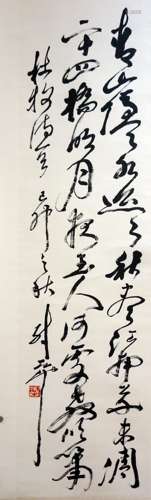 青山隱々水迢々秋尽江南草未凋
二十四橋明月夜玉人何處教吹簫
杜牧诗 己卯之秋